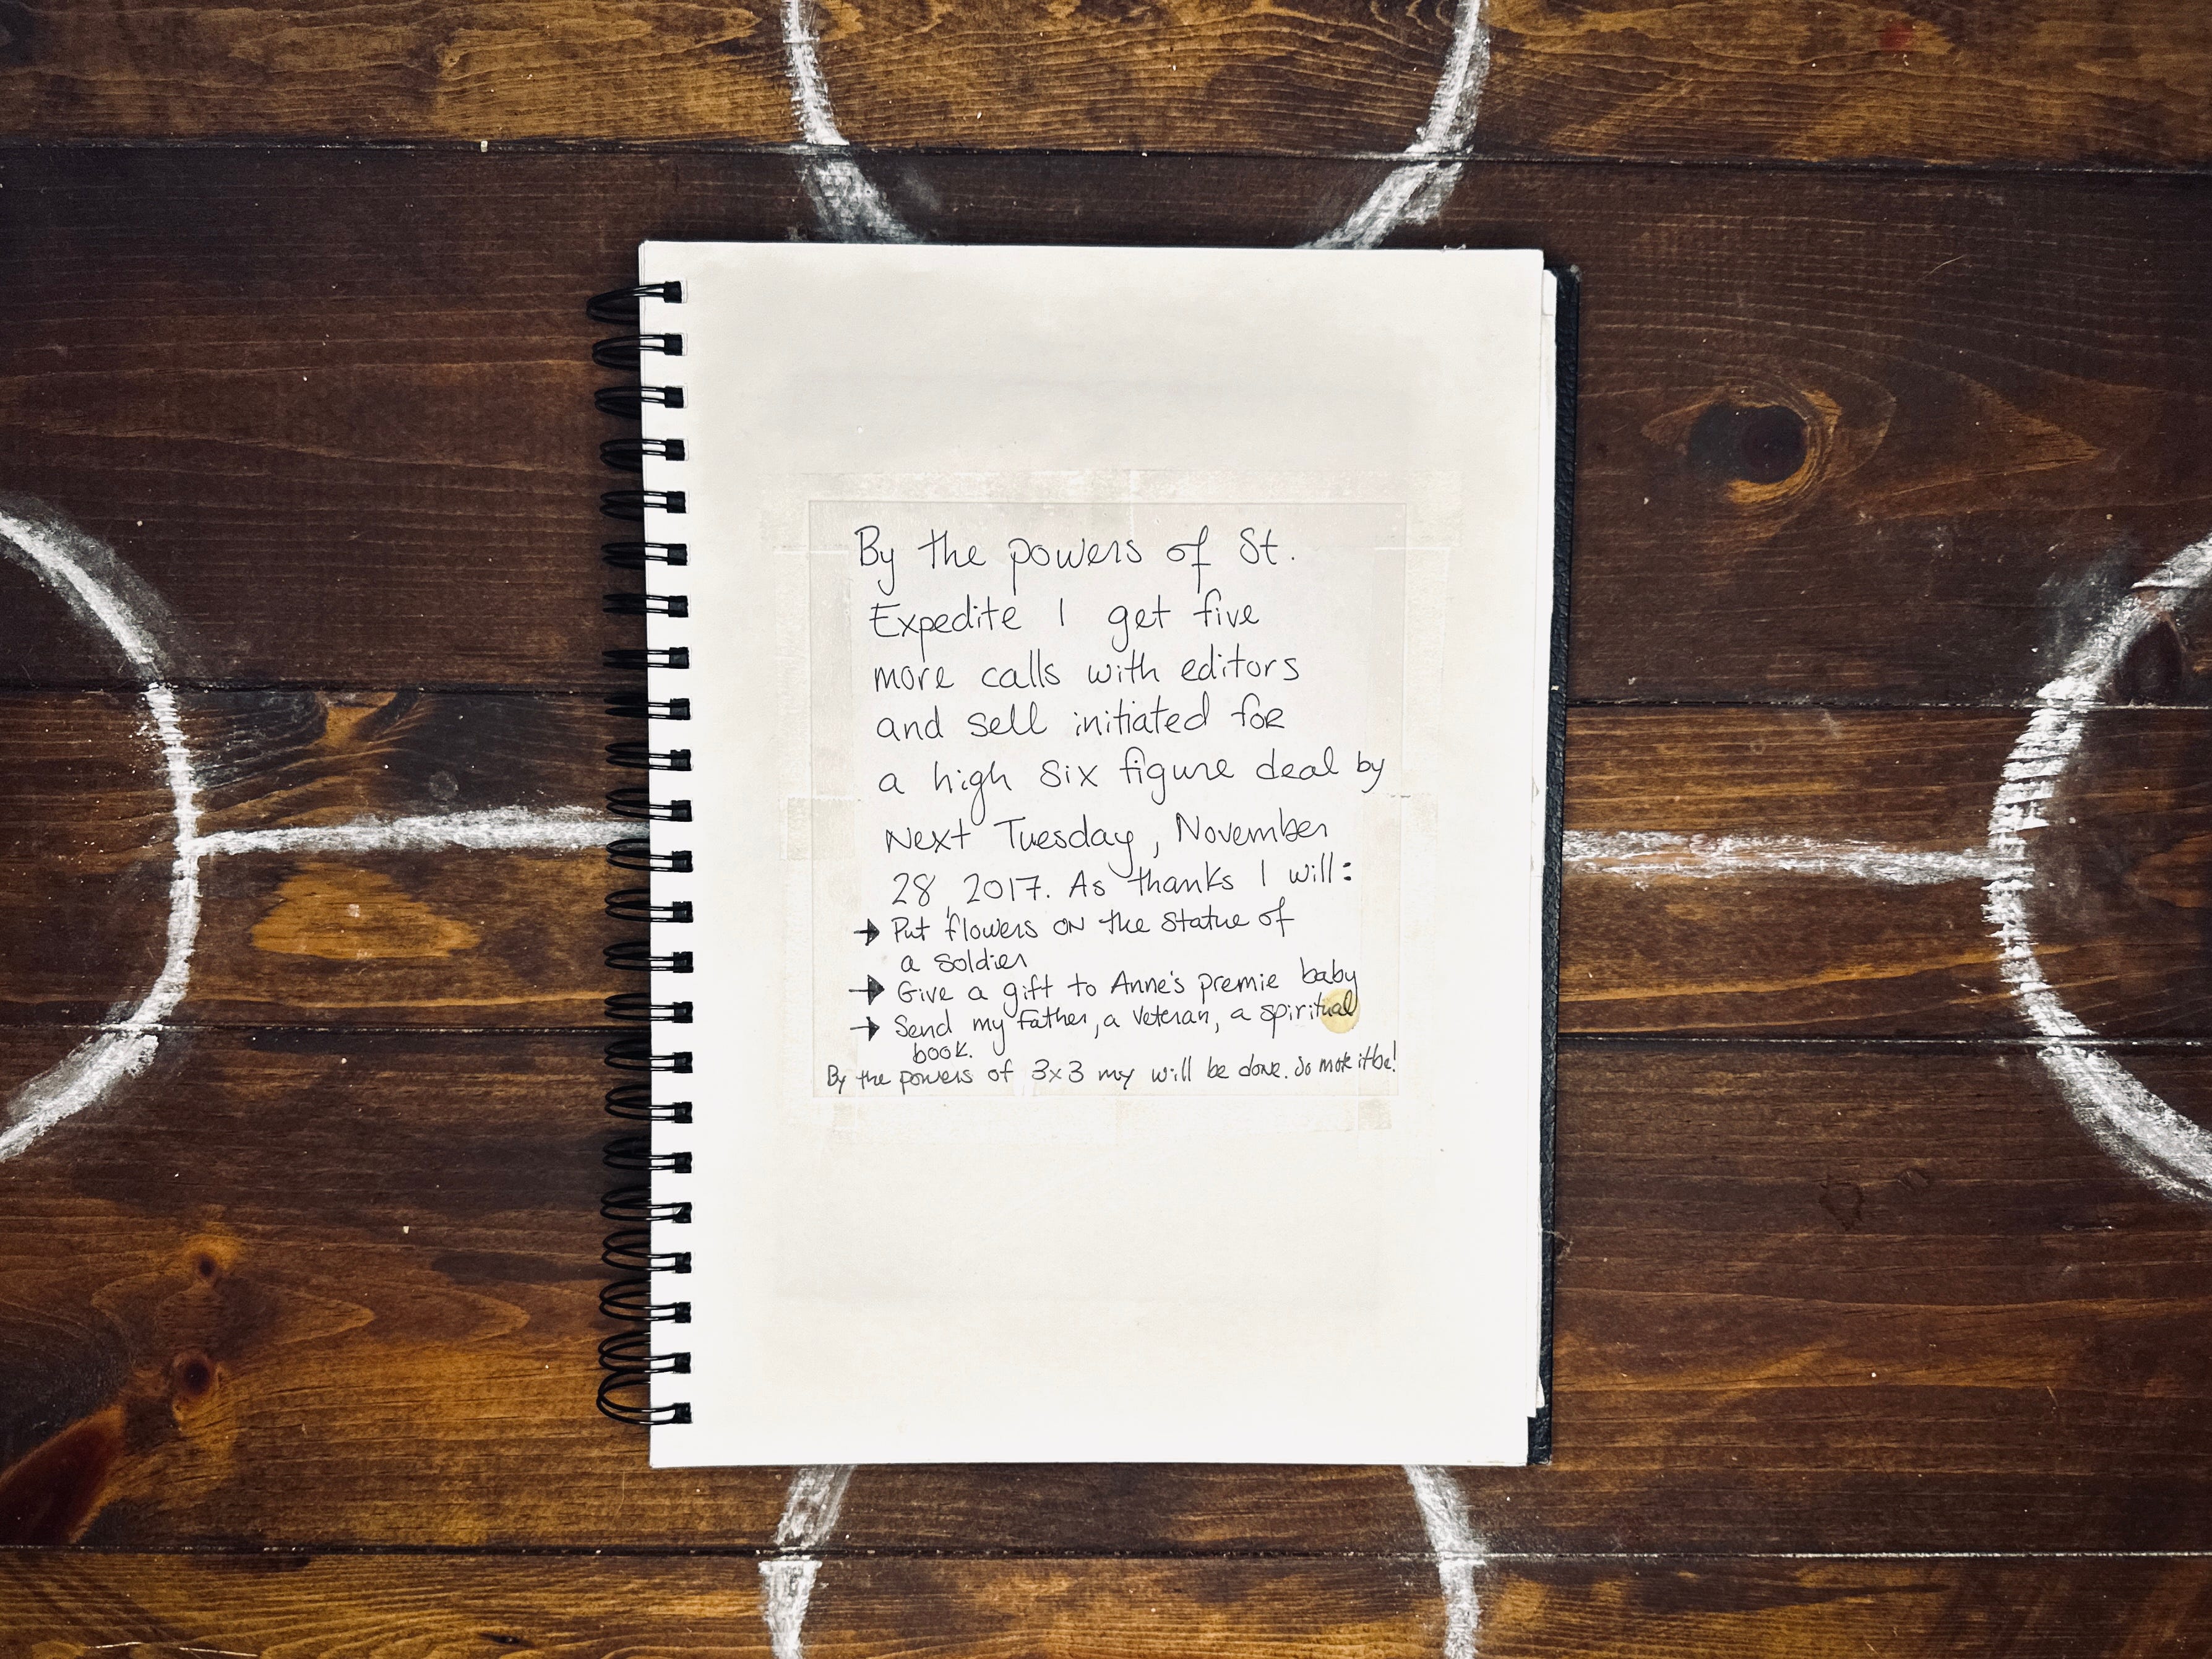 By the powers of St.
Expedite I get five
more calls with editors
and sell initiated for
a high six figure deal by
Next Tuesday, November
28, 2017. As thanks I will:
→ Put flowers on the statue of
a soldier
→ Give a gift to Anne's premie baby
→ Send my father, a veteran, a spiritual
book.
By the powers of 3x3 my will be done. So mote it be!